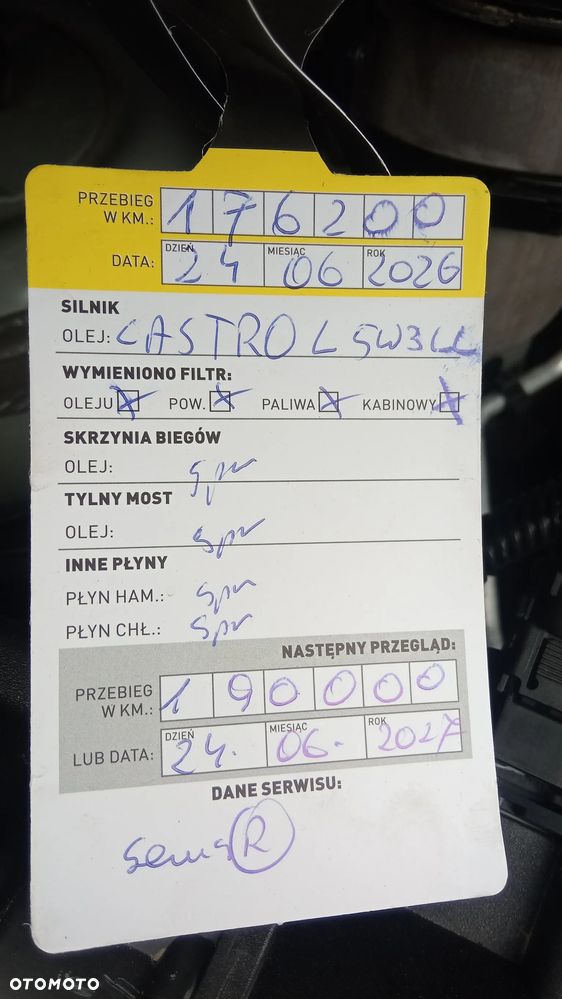 PRZEBIEG W KM.: 176200
DZIEŃ MIESIĄC ROK
DATA: 24 06 2026
SILNIK
OLEJ: CASTROL 5W3LL
WYMIENIONO FILTR:
OLEJU X POW. X PALIWA X KABINOWY X
SKRZYNIA BIEGÓW
OLEJ: spr
TYLNY MOST
OLEJ: spr
INNE PŁYNY
PŁYN HAM.: spr
PŁYN CHŁ.: spr
NASTĘPNY PRZEGLĄD:
PRZEBIEG W KM.: 190000
DZIEŃ MIESIĄC ROK
LUB DATA: 24. 06. 2027
DANE SERWISU:
R
OTOMOTO